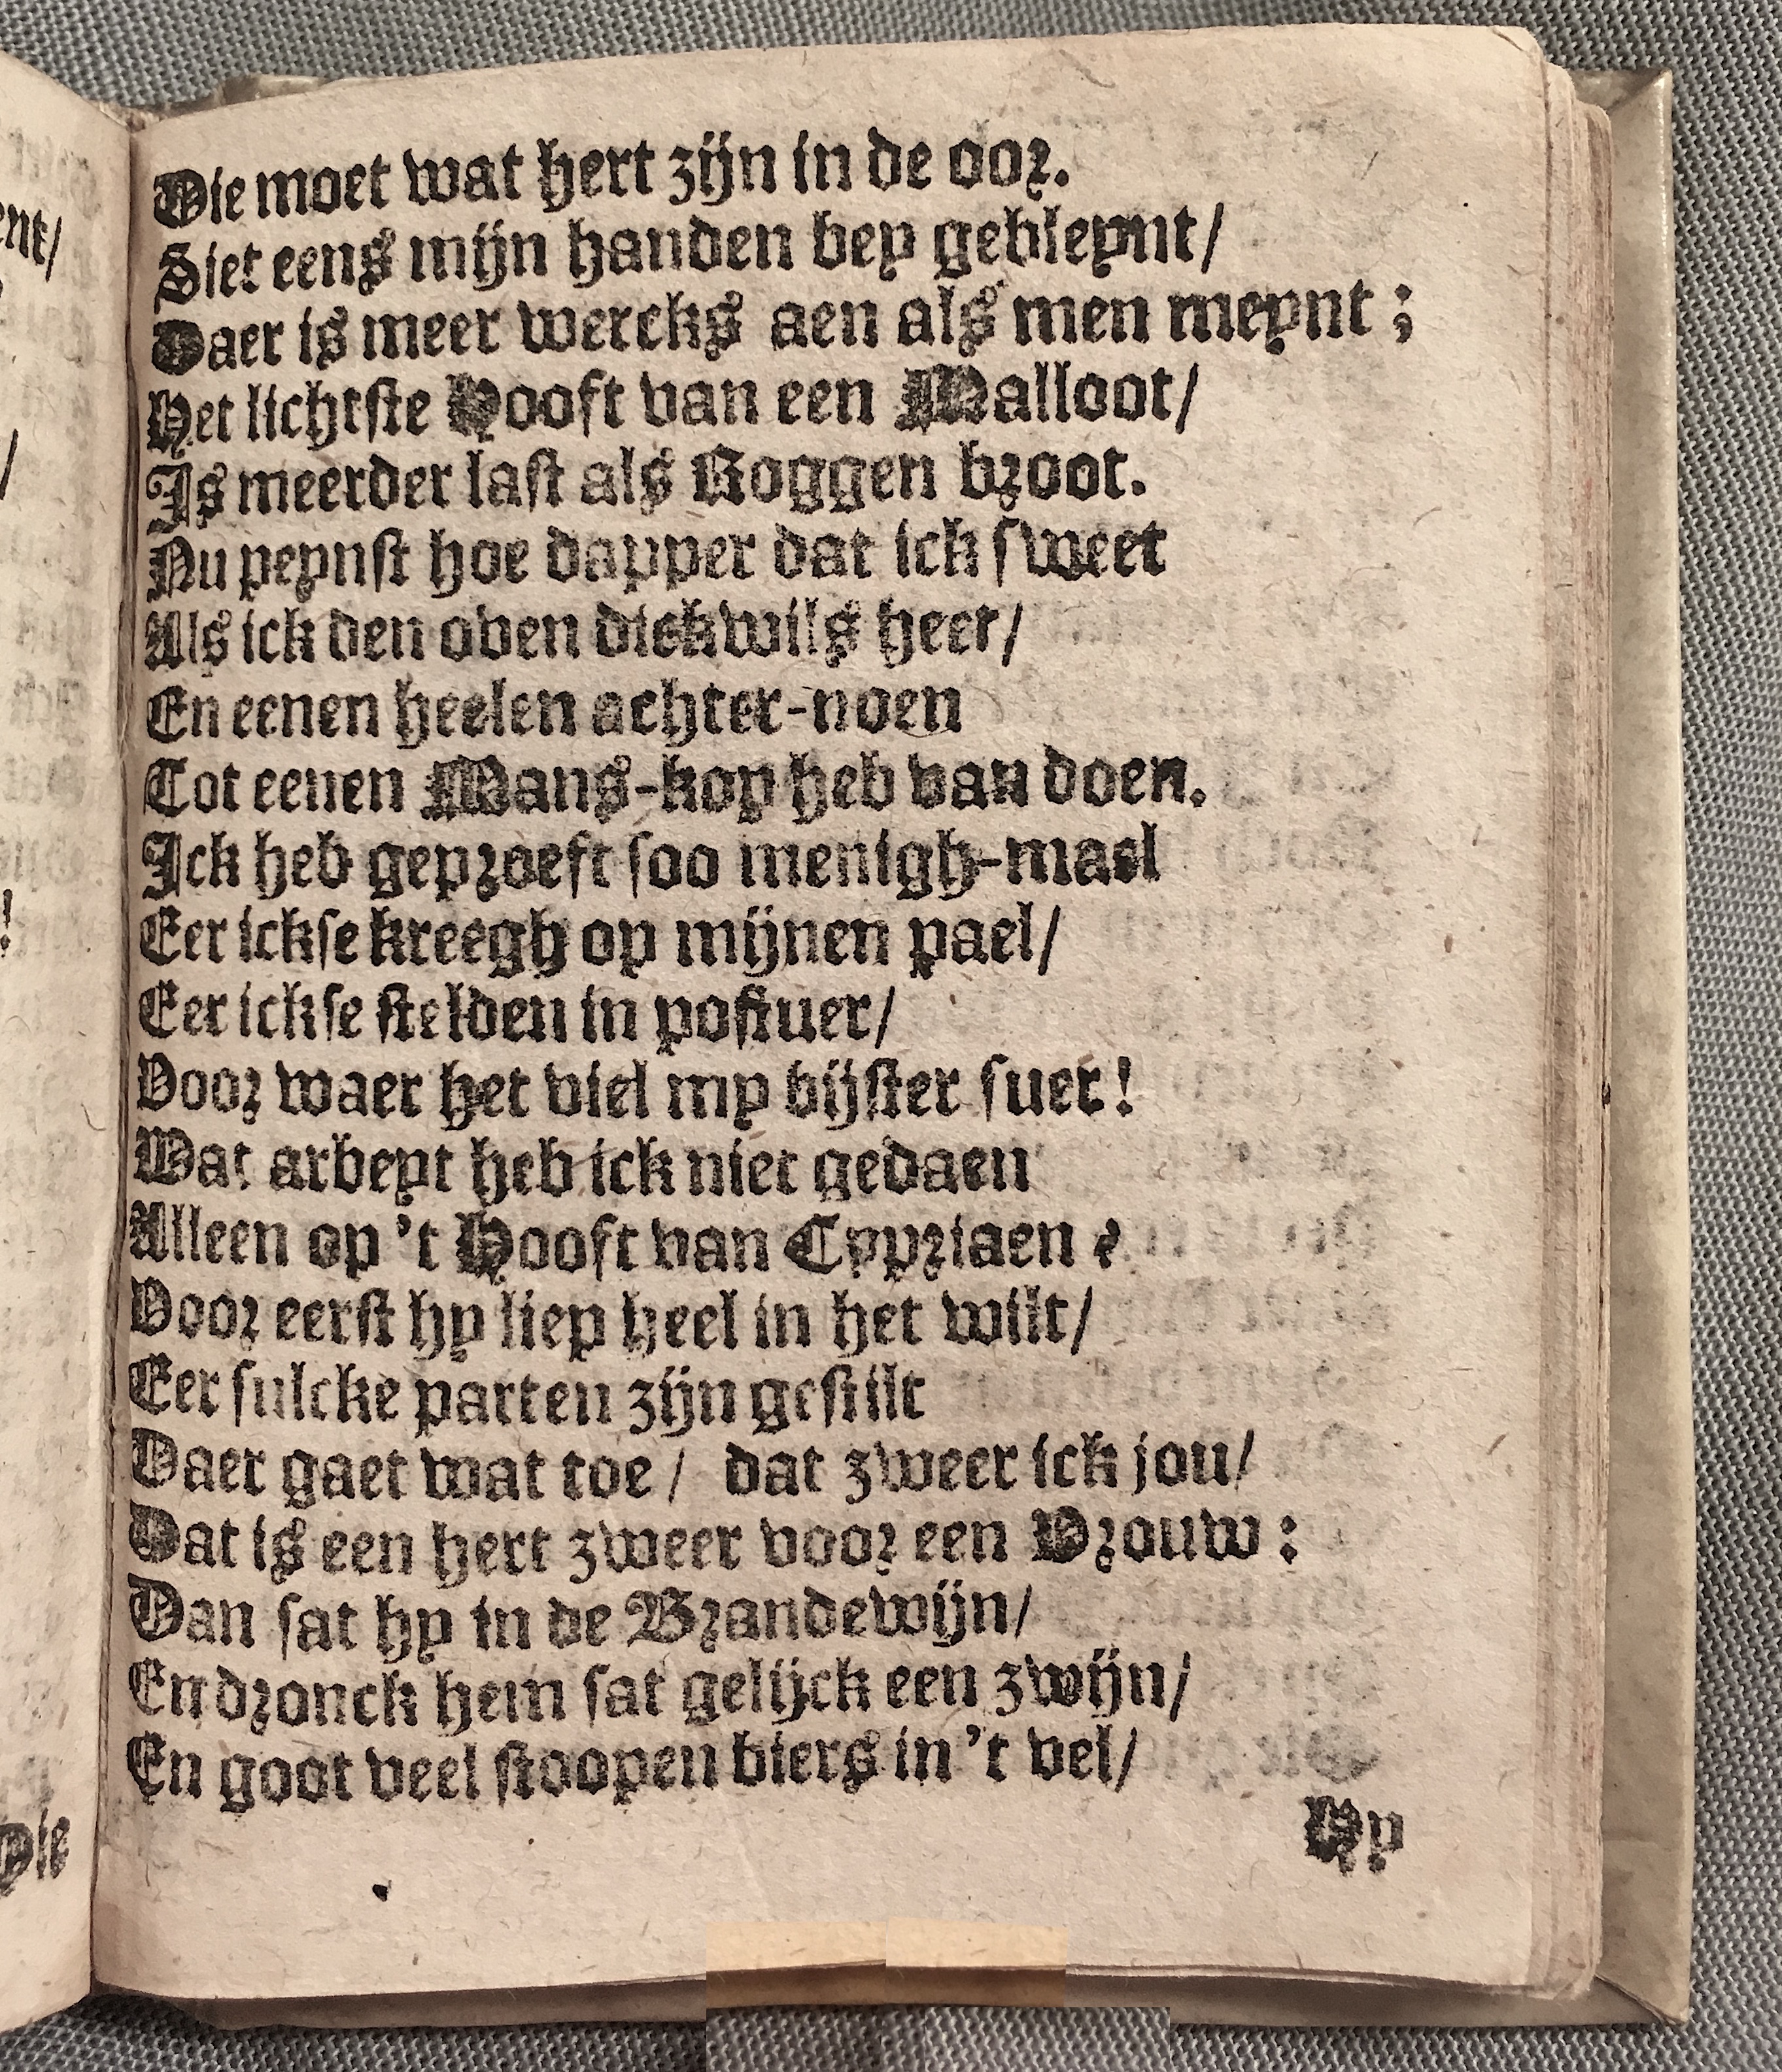 Die moet wat hert zijn in de oor.
Siet eens mijn handen bey gebleynt/
Daer is meer wercks aen als men meynt;
Het lichtste Hooft van een Malloot/
Is meerder last als Roggen broot.
Nu peynst hoe dapper dat ick sweet
Als ick den oven dickwils heet/
En eenen heelen achter-noen
Tot eenen Mans-kop heb van doen.
Ick heb geproeft soo menigh-mael
Eer ickse kreegh op mijnen pael/
Eer ickse stelden in postuer/
Voor waer het viel my bijster suer!
Wat arbeyt heb ick niet gedaen
Alleen op 't Hooft van Cypriaen?
Voor eerst hy liep heel in het wilt/
Eer sulcke parten zijn gestilt
Daer gaet wat toe/ dat zweer ick jou/
Dat is een hert zweer voor een Vrouw:
Dan sat hy in de Brandewijn/
En dronck hem sat gelijck een zwijn/
En goot veel stoopen biers in 't vel/
Hy
ent/
/
!
Die